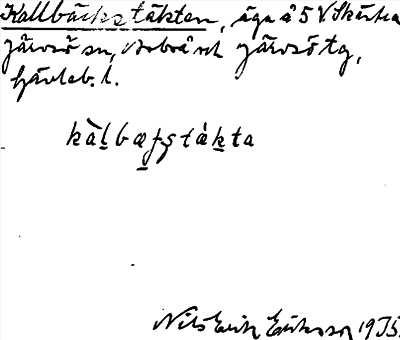 Kallbäckstäkten, äga å 5 V Skästra
järvsö sn, Arbrå och järvsö tg,
Gävleb. l.
kàl̲bæ̲ksták̲ta
Nils Erik Eriksson 1935.